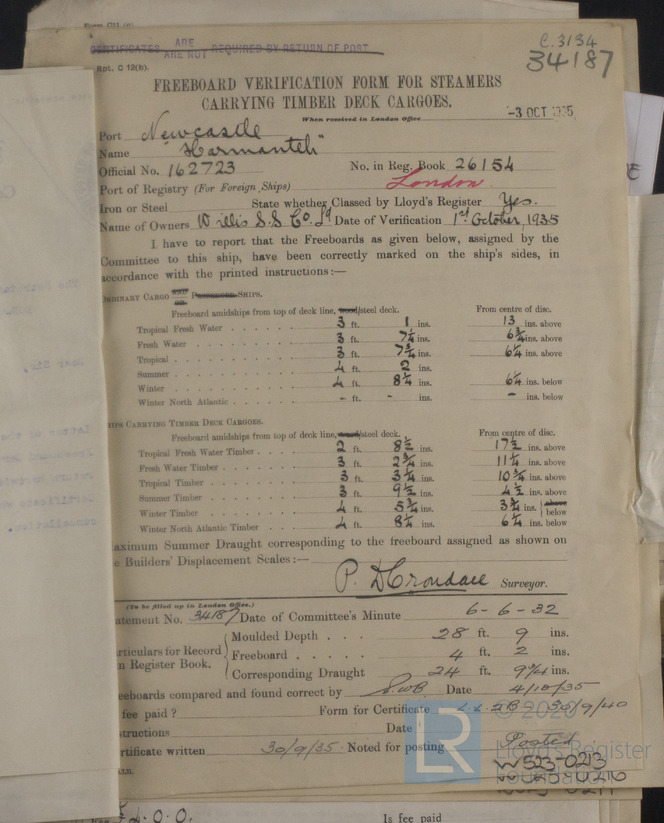 CERTIFICATES ARE REQUIRED BY RETURN OF POST
ARE NOT
C.3134
34187
Rpt. C 12(b).
FREEBOARD VERIFICATION FORM FOR STEAMERS
CARRYING TIMBER DECK CARGOES.
When received in London Office
-3 OCT 1935
Port Newcastle
Name "Harmanteh"
Official No. 162723 No. in Reg. Book 26154
Port of Registry (For Foreign Ships) London
Iron or Steel State whether Classed by Lloyd's Register Yes.
Name of Owners Willis S.S Co. Ld Date of Verification 1st October, 1935
I have to report that the Freeboards as given below, assigned by the
Committee to this ship, have been correctly marked on the ship's sides, in
accordance with the printed instructions:—
ORDINARY CARGO SHIPS.
Freeboard amidships from top of deck line, wood/steel deck. From centre of disc.
Tropical Fresh Water 3 ft. 1 ins. 13 ins. above
Fresh Water 3 ft. 7¼ ins. 6¾ ins. above
Tropical 3 ft. 7¾ ins. 6¼ ins. above
Summer 4 ft. 2 ins.
Winter 4 ft. 8¼ ins. 6¼ ins. below
Winter North Atlantic - ft. - ins. - ins. below
SHIPS CARRYING TIMBER DECK CARGOES.
Freeboard amidships from top of deck line, wood/steel deck. From centre of disc.
Tropical Fresh Water Timber 2 ft. 8½ ins. 17½ ins. above
Fresh Water Timber 3 ft. 2¾ ins. 11¼ ins. above
Tropical Timber 3 ft. 3¼ ins. 10¾ ins. above
Summer Timber 3 ft. 9½ ins. 4½ ins. above
Winter Timber 4 ft. 5¾ ins. 3¾ ins. above below
Winter North Atlantic Timber 4 ft. 8¼ ins. 6¼ ins. below
aximum Summer Draught corresponding to the freeboard assigned as shown on
e Builders' Displacement Scales:—
Surveyor.
(To be filled up in London Office.)
atement No. 34187 Date of Committee's Minute 6-6-32
articulars for Record
n Register Book.
Moulded Depth 28 ft. 9 ins.
Freeboard 4 ft. 2 ins.
Corresponding Draught 24 ft. 9¼ ins.
eeboards compared and found correct by Date 4/10/35
fee paid? Form for Certificate 30/9/40
structions Date
rtificate written 30/9/35. Noted for posting Posted
© 2020
LR
Lloyd's Register
Foundation
W523-0213
£.0.0. Is fee paid